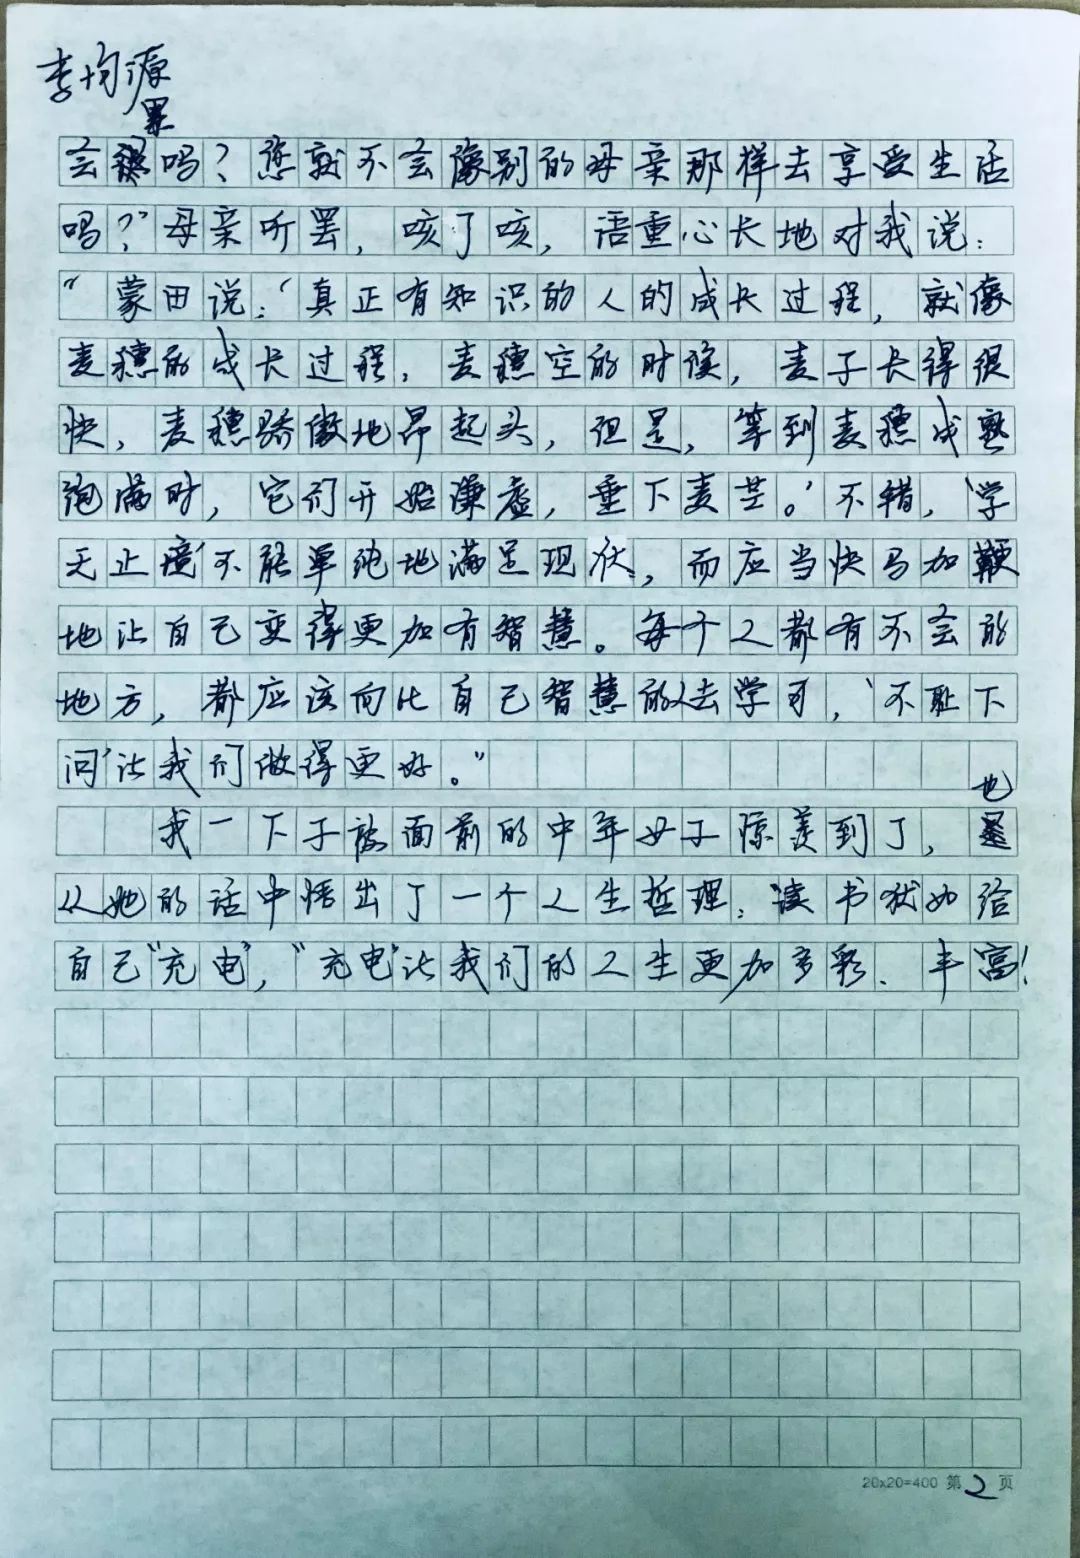 李均源
累
会吗？您就不会像别的母亲那样去享受生活
吗？”母亲听罢，咳了咳，语重心长地对我说：
“蒙田说：‘真正有知识的人的成长过程，就像
麦穗的成长过程，麦穗空的时候，麦子长得很
快，麦穗骄傲地昂起头，但是，等到麦穗成熟
饱满时，它们开始谦虚，垂下麦芒。’不错，‘学
无止境’不能单纯地满足现状，而应当快马加鞭
地让自己变得更加有智慧。每个人都有不会的
地方，都应该向比自己智慧的人去学习，‘不耻下
问’让我们做得更好。”
也
我一下子被面前的中年女子惊羡到了，
从她的话中悟出了一个人生哲理：读书犹如给
自己“充电”，“充电”让我们的人生更加多彩、丰富！
20x20=400 第2页